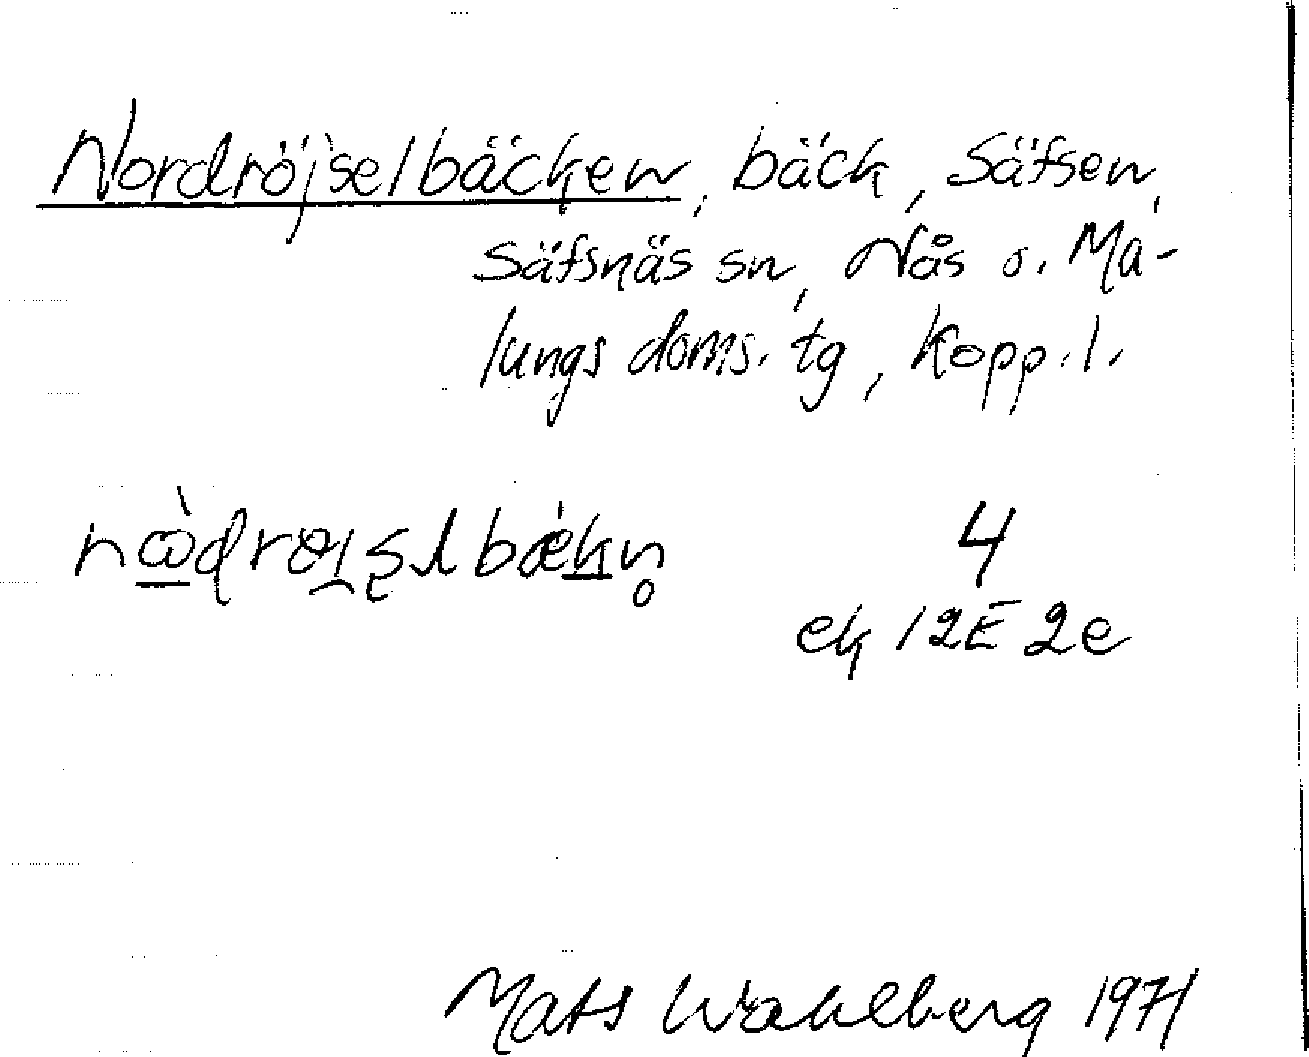 Nordröjselbäcken, bäck, Säfsen,
Säfsnäs sn, Nås o. Ma-
lungs doms. tg, Kopp. l.
4
ek 12E 2e
Mats Wahlberg 1971